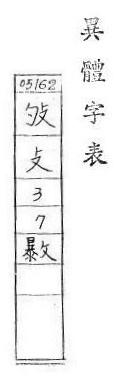 異體字表
05162
攴
3
7